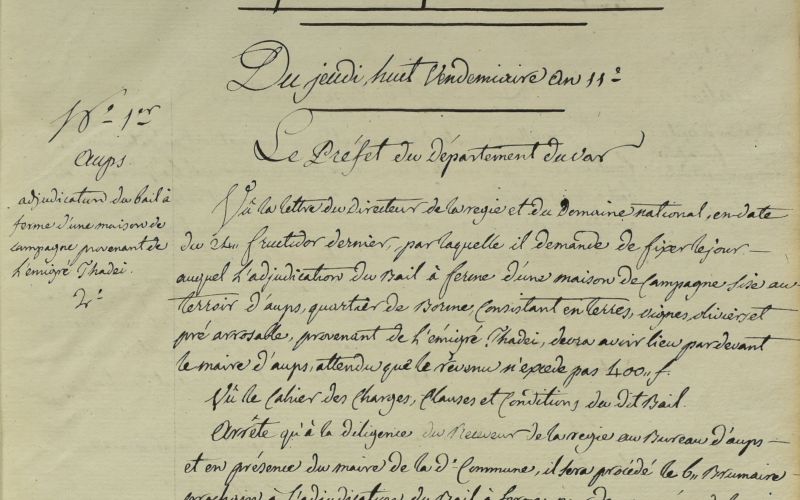 Du jeudi, huit Vendemiaire an 11e
N.º 1er
Aups.
adjudication du bail à
ferme d'une maison de
campagne provenant de
l'émigré Thadei.
2e
Le Préfet du département du var
Vû la lettre du Directeur de la regie et du Domaine national, en date
du 24 fructidor dernier, par laquelle il demande de fixer le jour
auquel l'adjudication du Bail à ferme d'une maison de Campagne Sise au
terroir d'aups, quartier de Borme, Consistant en terres, vignes, oliviers et
pré arrosable, provenant de l'émigré Thadei, devra avoir lieu pardevant
le maire d'aups, attendu que le revenu n'excede pas 400,, f.
Vû le Cahier des Charges, Clauses et Conditions du dit Bail.
Arrête qu'à la diligence du Receveur de la regie au Bureau d'aups
et en présence du maire de la d.e Commune, il sera procédé le 6,, Brumaire
prochain à l'adjudication du Bail à ferme